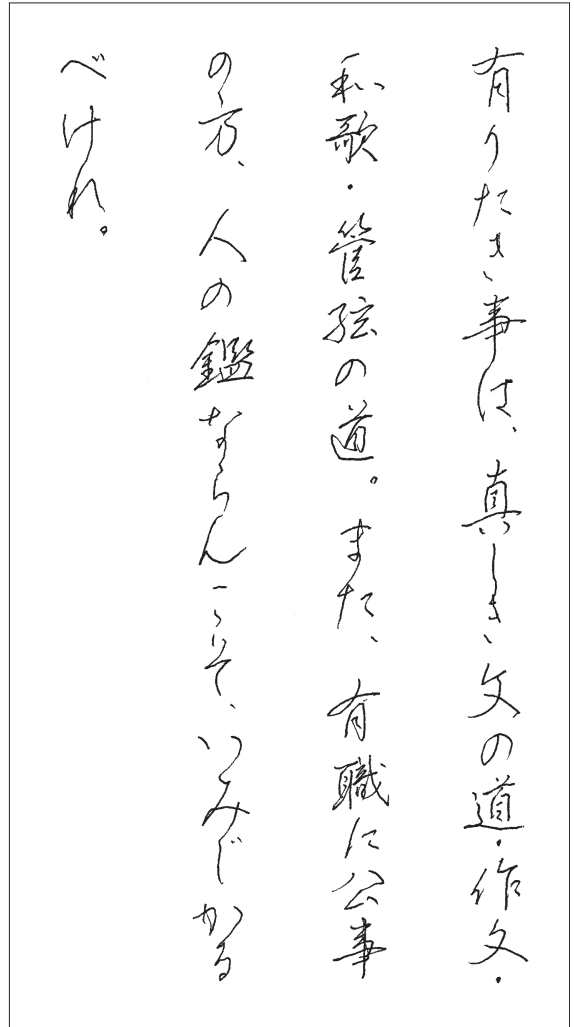 有りたき事は、真しき文の道・作文・
和歌・管弦の道。また、有職に公事
の方、人の鑑ならんこそ、いみじかる
べけれ。